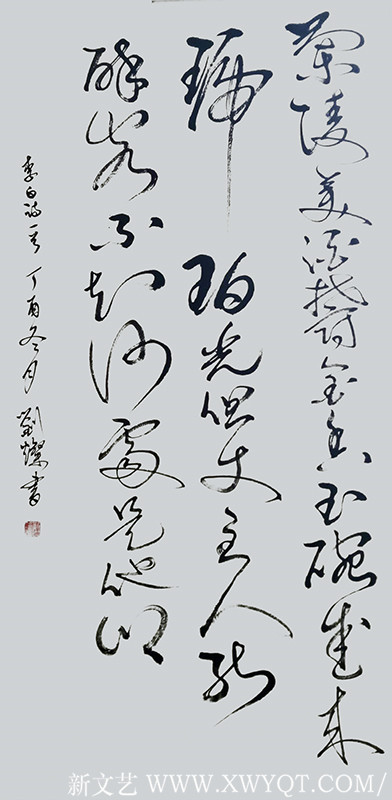 蘭陵美酒鬱金香玉碗盛来
琥珀光但使主人能
醉客不知何處是他鄉
李白詩一首丁酉冬月劉燦書
新文艺 WWW.XWYQT.COM/